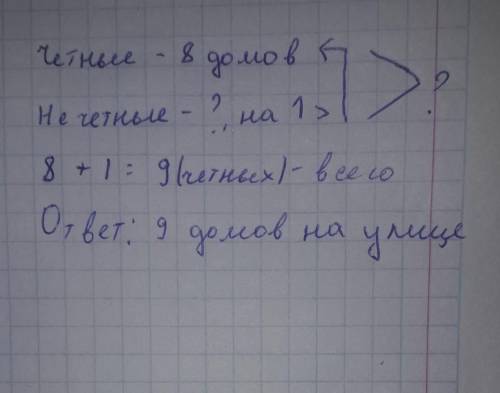 Четные - 8 домов
Не четные - ?, на 1 > ?
8 + 1 = 9(четных)- всего
Ответ: 9 домов на улице